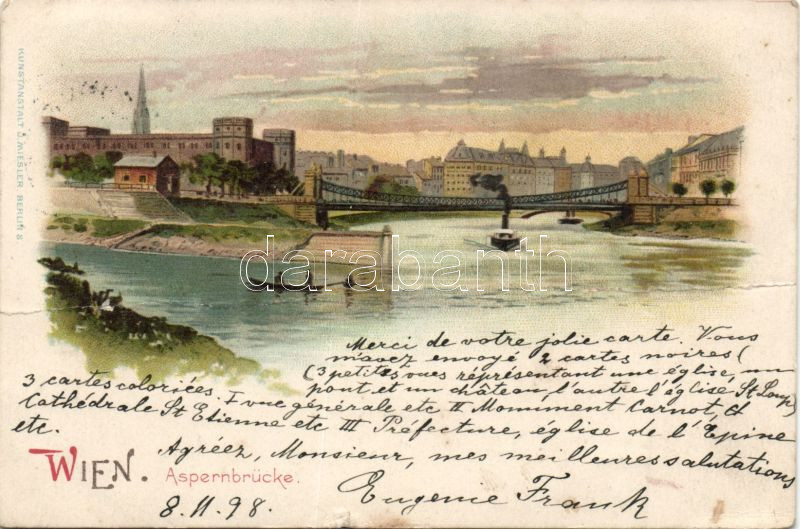 KUNSTANSTALT J. MIESLER BERLIN S
darabanth
Merci de votre jolie carte. Vous
m'avez envoyé 2 cartes noires (
(3 petites vues représentant une église, un
pont et un château, l'autre l'église St Loup)
3 cartes coloriées. I vue générale etc II Monument Carnot, et
Cathédrale St Etienne etc III Préfecture, église de l'Epine
etc.
Agréez, Monsieur, mes meilleures salutations
WIEN. Aspernbrücke.
8.11.98. Eugenie Frank